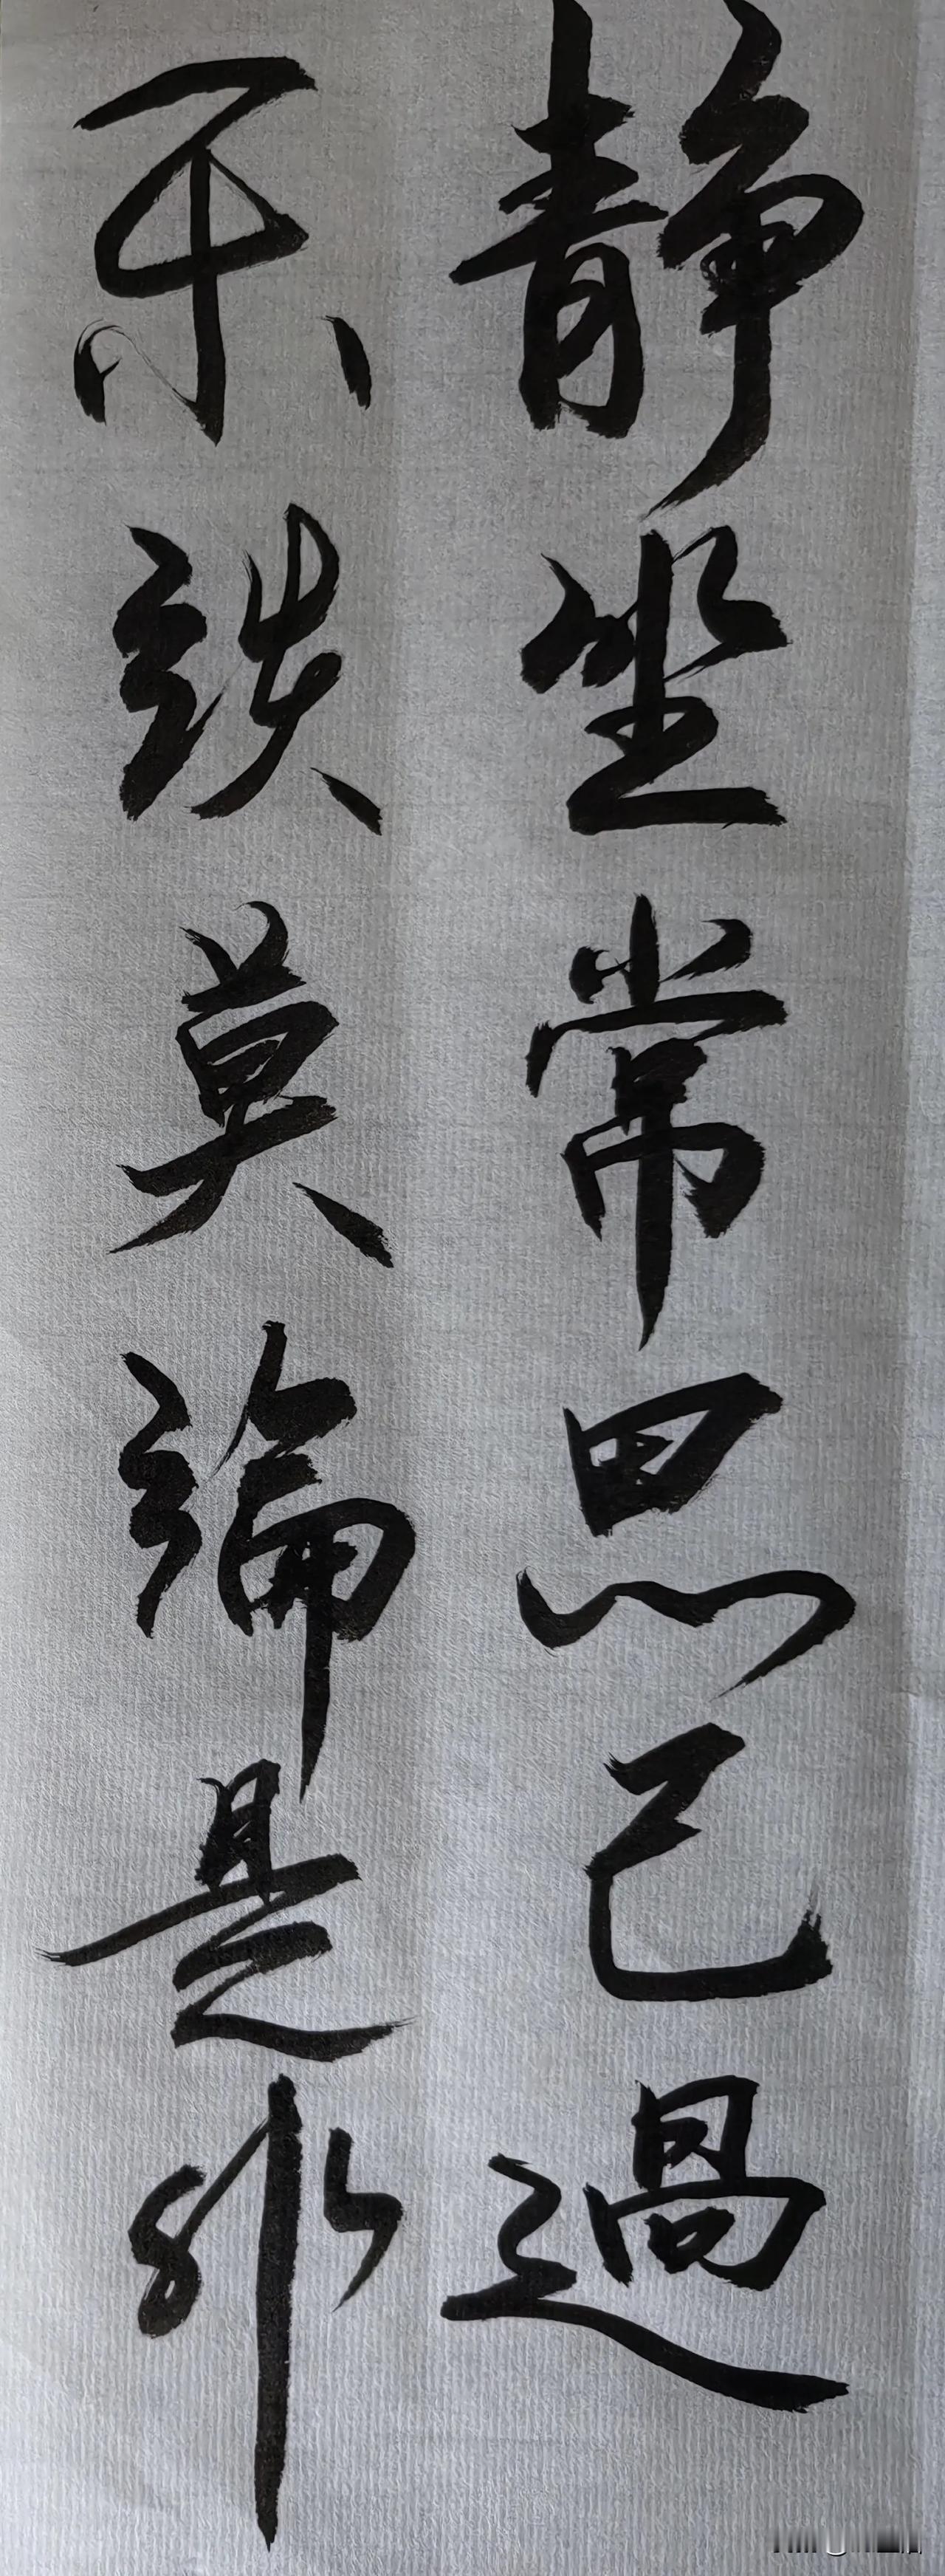 静坐常思己過
閑談莫論是非